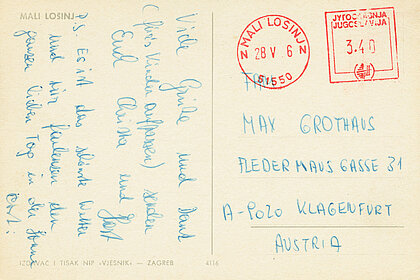 MALI LOSINJ
Viele Grüße und Dank
(fürs Kinderaufpassen) senden
Euch Christa und Horst
P.S. Es ist das schönste Wetter
und wir faulenzen den
ganzen lieben Tag in der Sonne
MALI LOSINJ
28 V 6
51550
JUGOSLAVIJA
3.40
MAX GROTHAUS
FLEDERMAUSGASSE 31
A-9020 KLAGENFURT
AUSTRIA
IZDAVAC I TISAK NIP «VJESNIK» — ZAGREB 4116